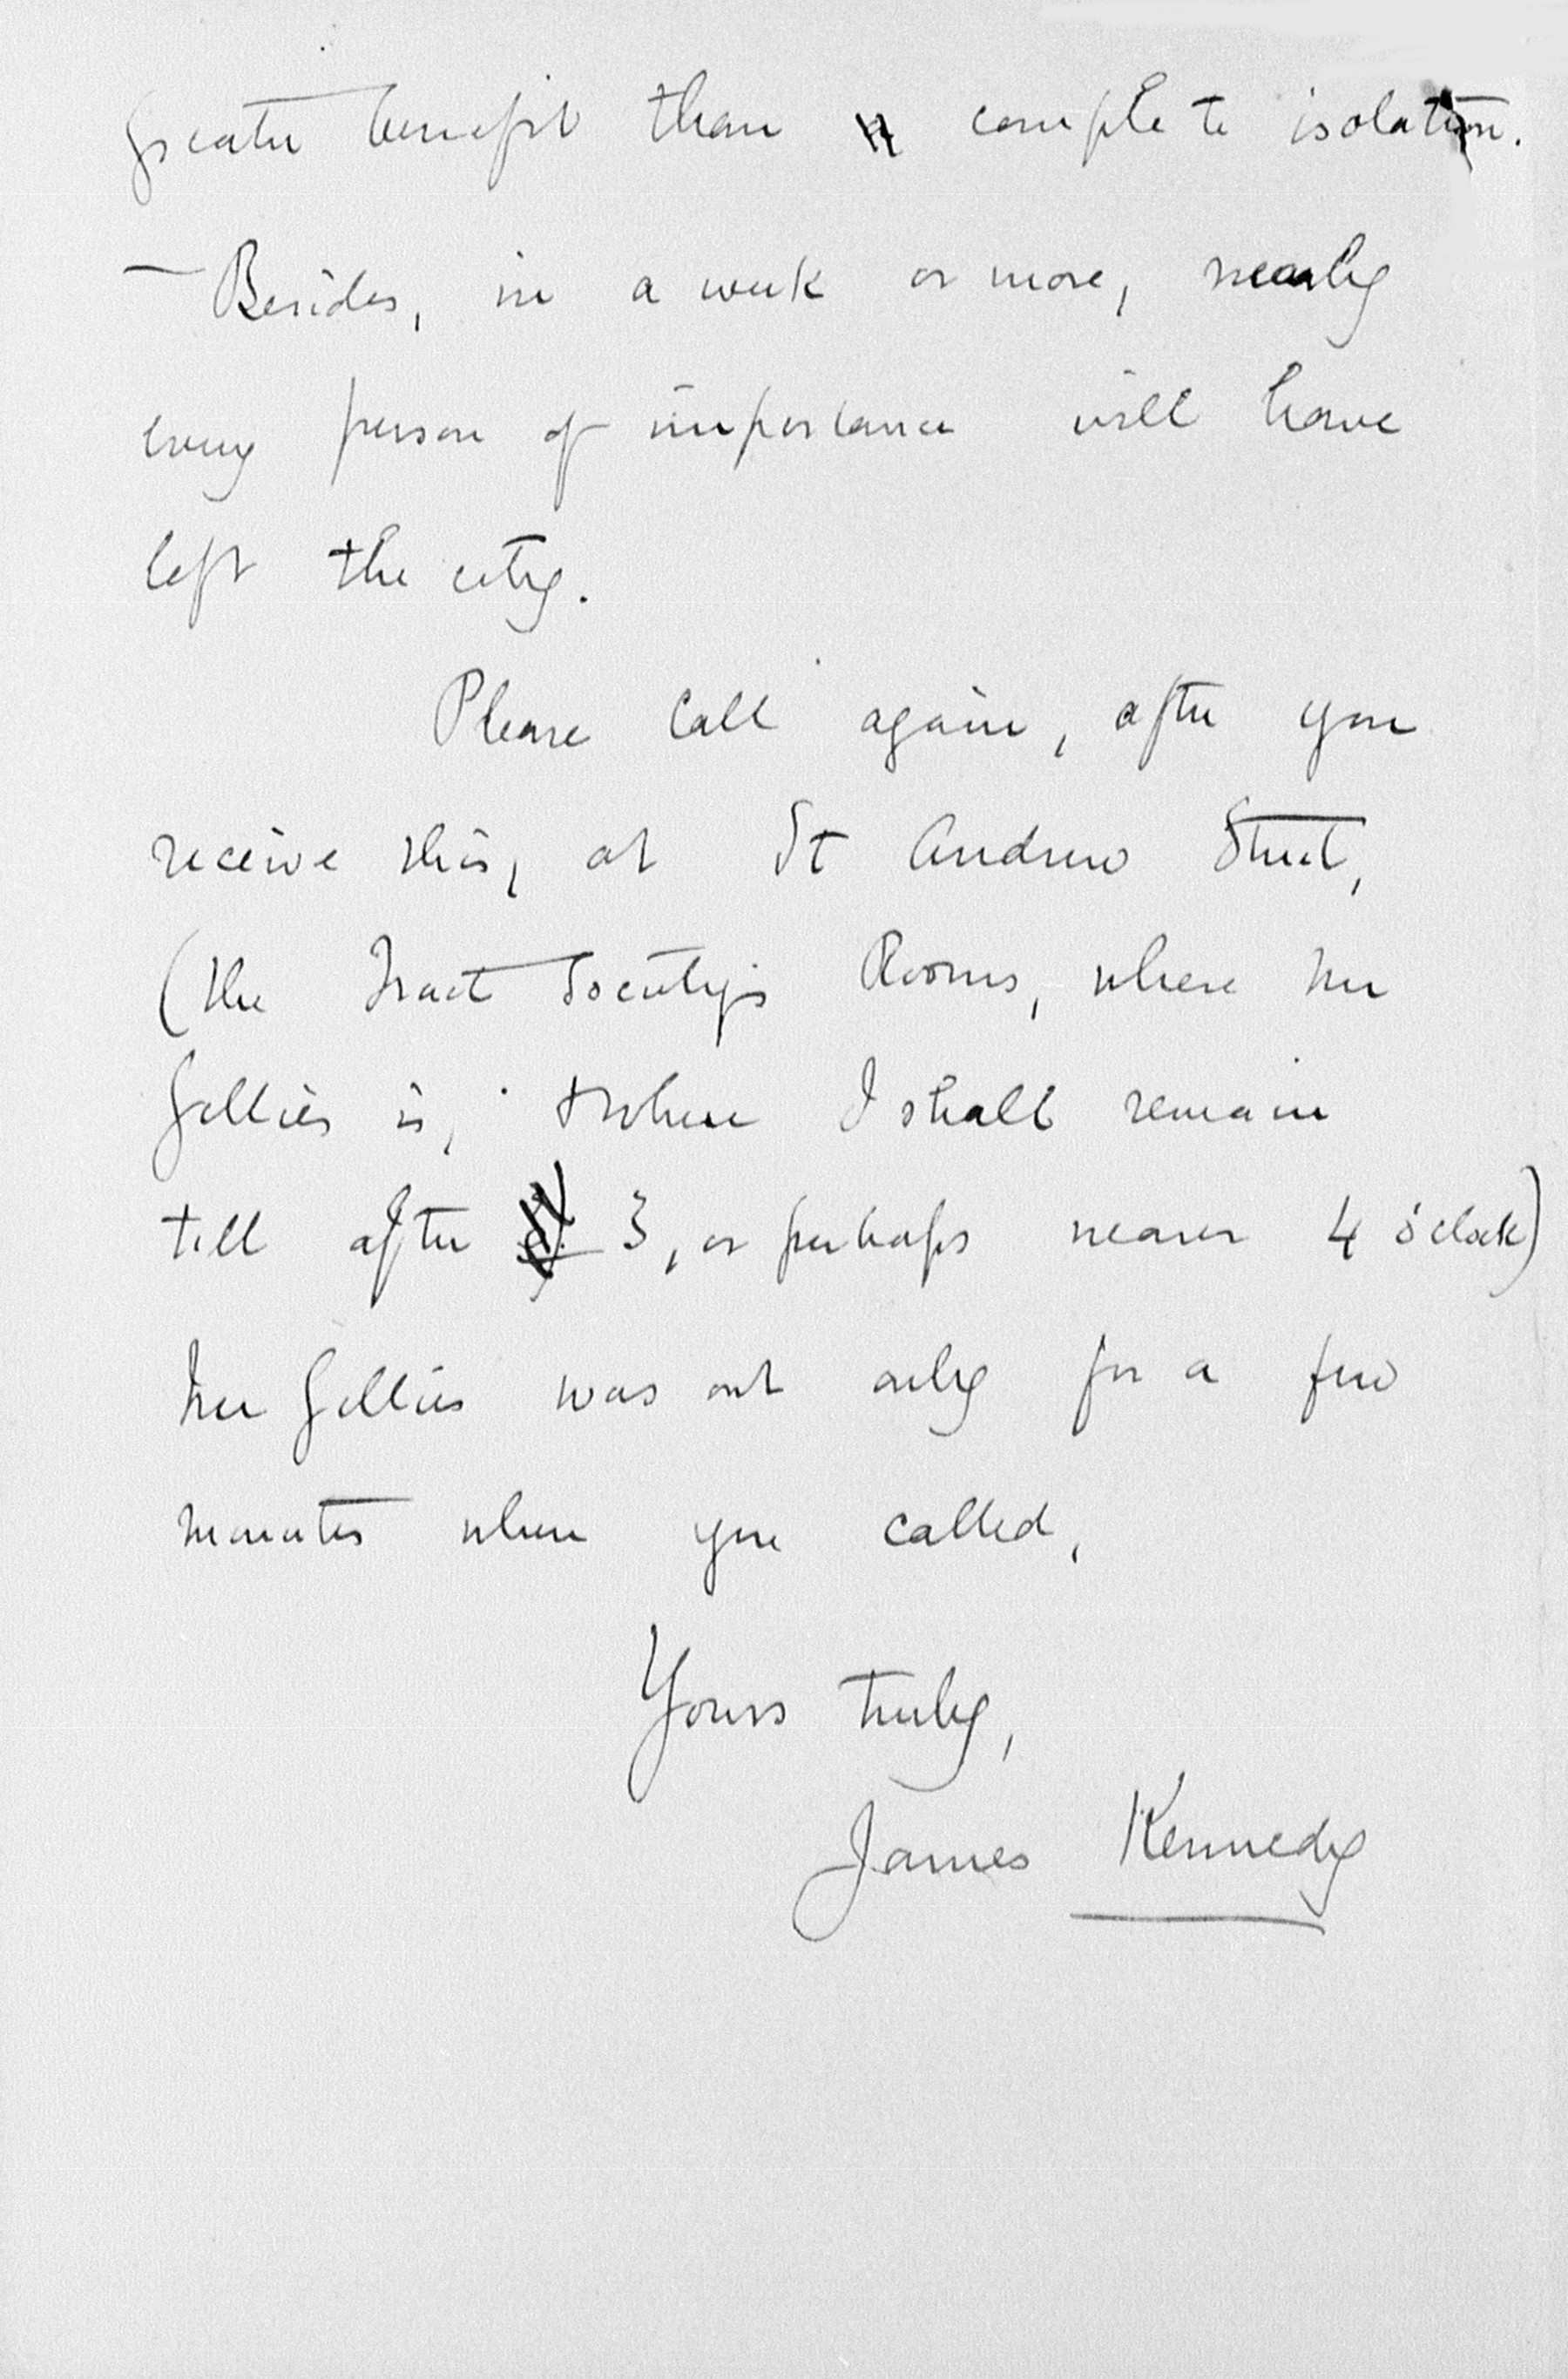 greater benefit than complete isolation.
— Besides, in a week or more, nearly
every person of importance will have
left the city.
Please call again, after you
receive this, at St Andrew Street,
(the Tract Society's Rooms, where Mr
Gellies is, & where I shall remain
till after 3, or perhaps nearer 4 o'clock)
Mr Gellies was out only for a few
minutes when you called,
Yours truly,
James Kennedy